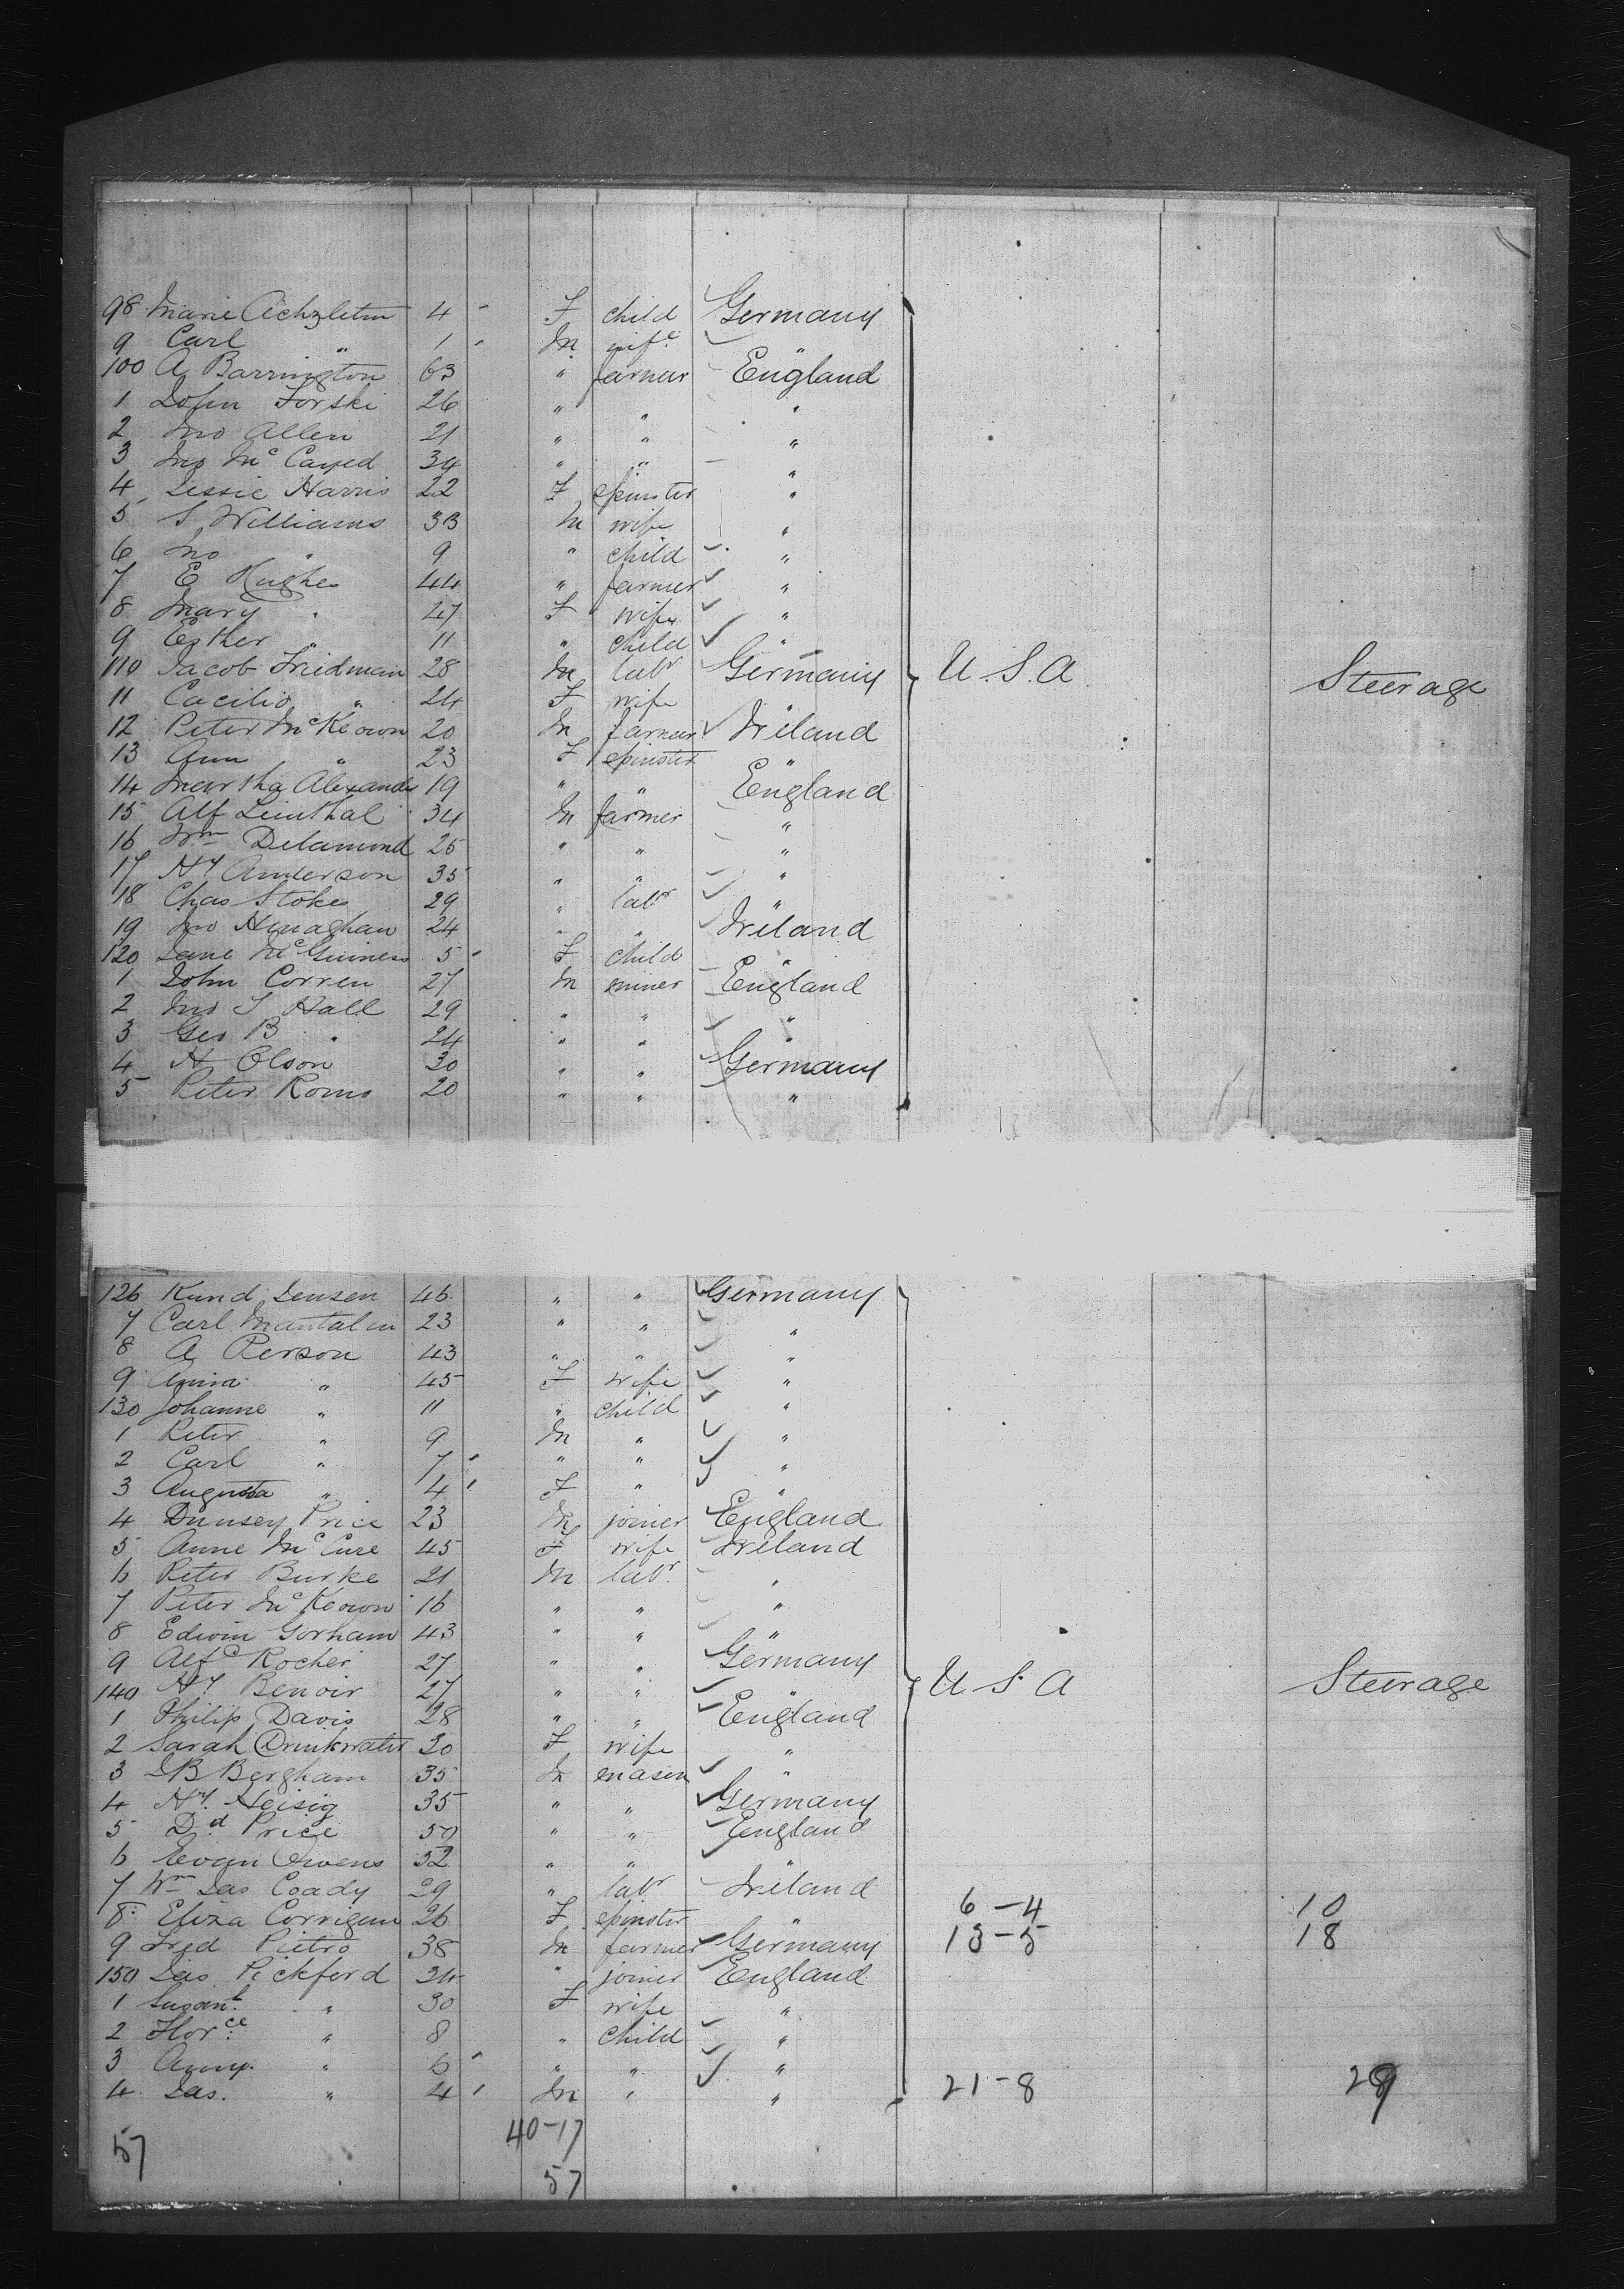 98 Marie Achzletin 4 F child Germany
9 Carl " 1 M inft "
100 A Barrington 63 " farmer England
1 John Forski 26 " " "
2 Jno Allen 21 " " "
3 Jno McCayed 34 " " "
4 Jessie Harris 22 F spinster "
5 S Williams 33 M wife "
6 Jno " 9 " child "
7 E Hughes 44 " farmer "
8 Mary " 47 F wife "
9 Esther " 11 " child "
110 Jacob Fridman 28 M labr Germany U.S.A Steerage
11 Cacilio " 24 F wife "
12 Peter McKeown 20 M farmer Ireland
13 Ann " 23 F spinster "
14 Martha Alexander 19 " " England
15 Alf Leinthal 34 M farmer "
16 Wm Delamond 25 " " "
17 Hy Anderson 35 " " "
18 Chas Stokes 29 " labr "
19 Jno Hinaghan 24 " " Ireland
120 Jane McGuiness 5 F child "
1 John Corren 27 M miner England
2 Jno S Hall 29 " " "
3 Geo B " 24 " " "
4 H Olson 30 " " Germany
5 Peter Roms 20 " " "
126 Kund Jensen 46 " " Germany
7 Carl Mantalin 23 " " "
8 A Person 43 " " "
9 Anna " 45 F wife "
130 Johanne " 11 " child "
1 Peter " 9 M " "
2 Carl " 7 " " "
3 Augusta " 4 F " "
4 Dunsey Price 23 M joiner England
5 Anne McCure 45 F wife Ireland
6 Peter Burke 21 M labr "
7 Peter McKeown 16 " " "
8 Edwin Gorham 43 " " "
9 Alfd Rocher 27 " " Germany
140 Hy Benoir 27 " " "
1 Philip Davis 28 " " England U.S.A Steerage
2 Sarah Drinkwater 30 F wife "
3 J B Bergham 35 M mason "
4 Hy Heisig 35 " " Germany
5 Dd Price 50 " " England
6 Evan Owens 52 " " "
7 Wm Jas Coady 29 " labr Ireland
8 Eliza Corrigan 26 F spinster " 6-4 10
9 Fred Pietro 38 M farmer Germany 13-5 18
150 Jas Pickford 34 " joiner England
1 Susant " 30 F wife "
2 Florce " 8 " child "
3 Anny " 6 " " "
4 Jas. " 4 M " " 21-8 29
57 40-17
57